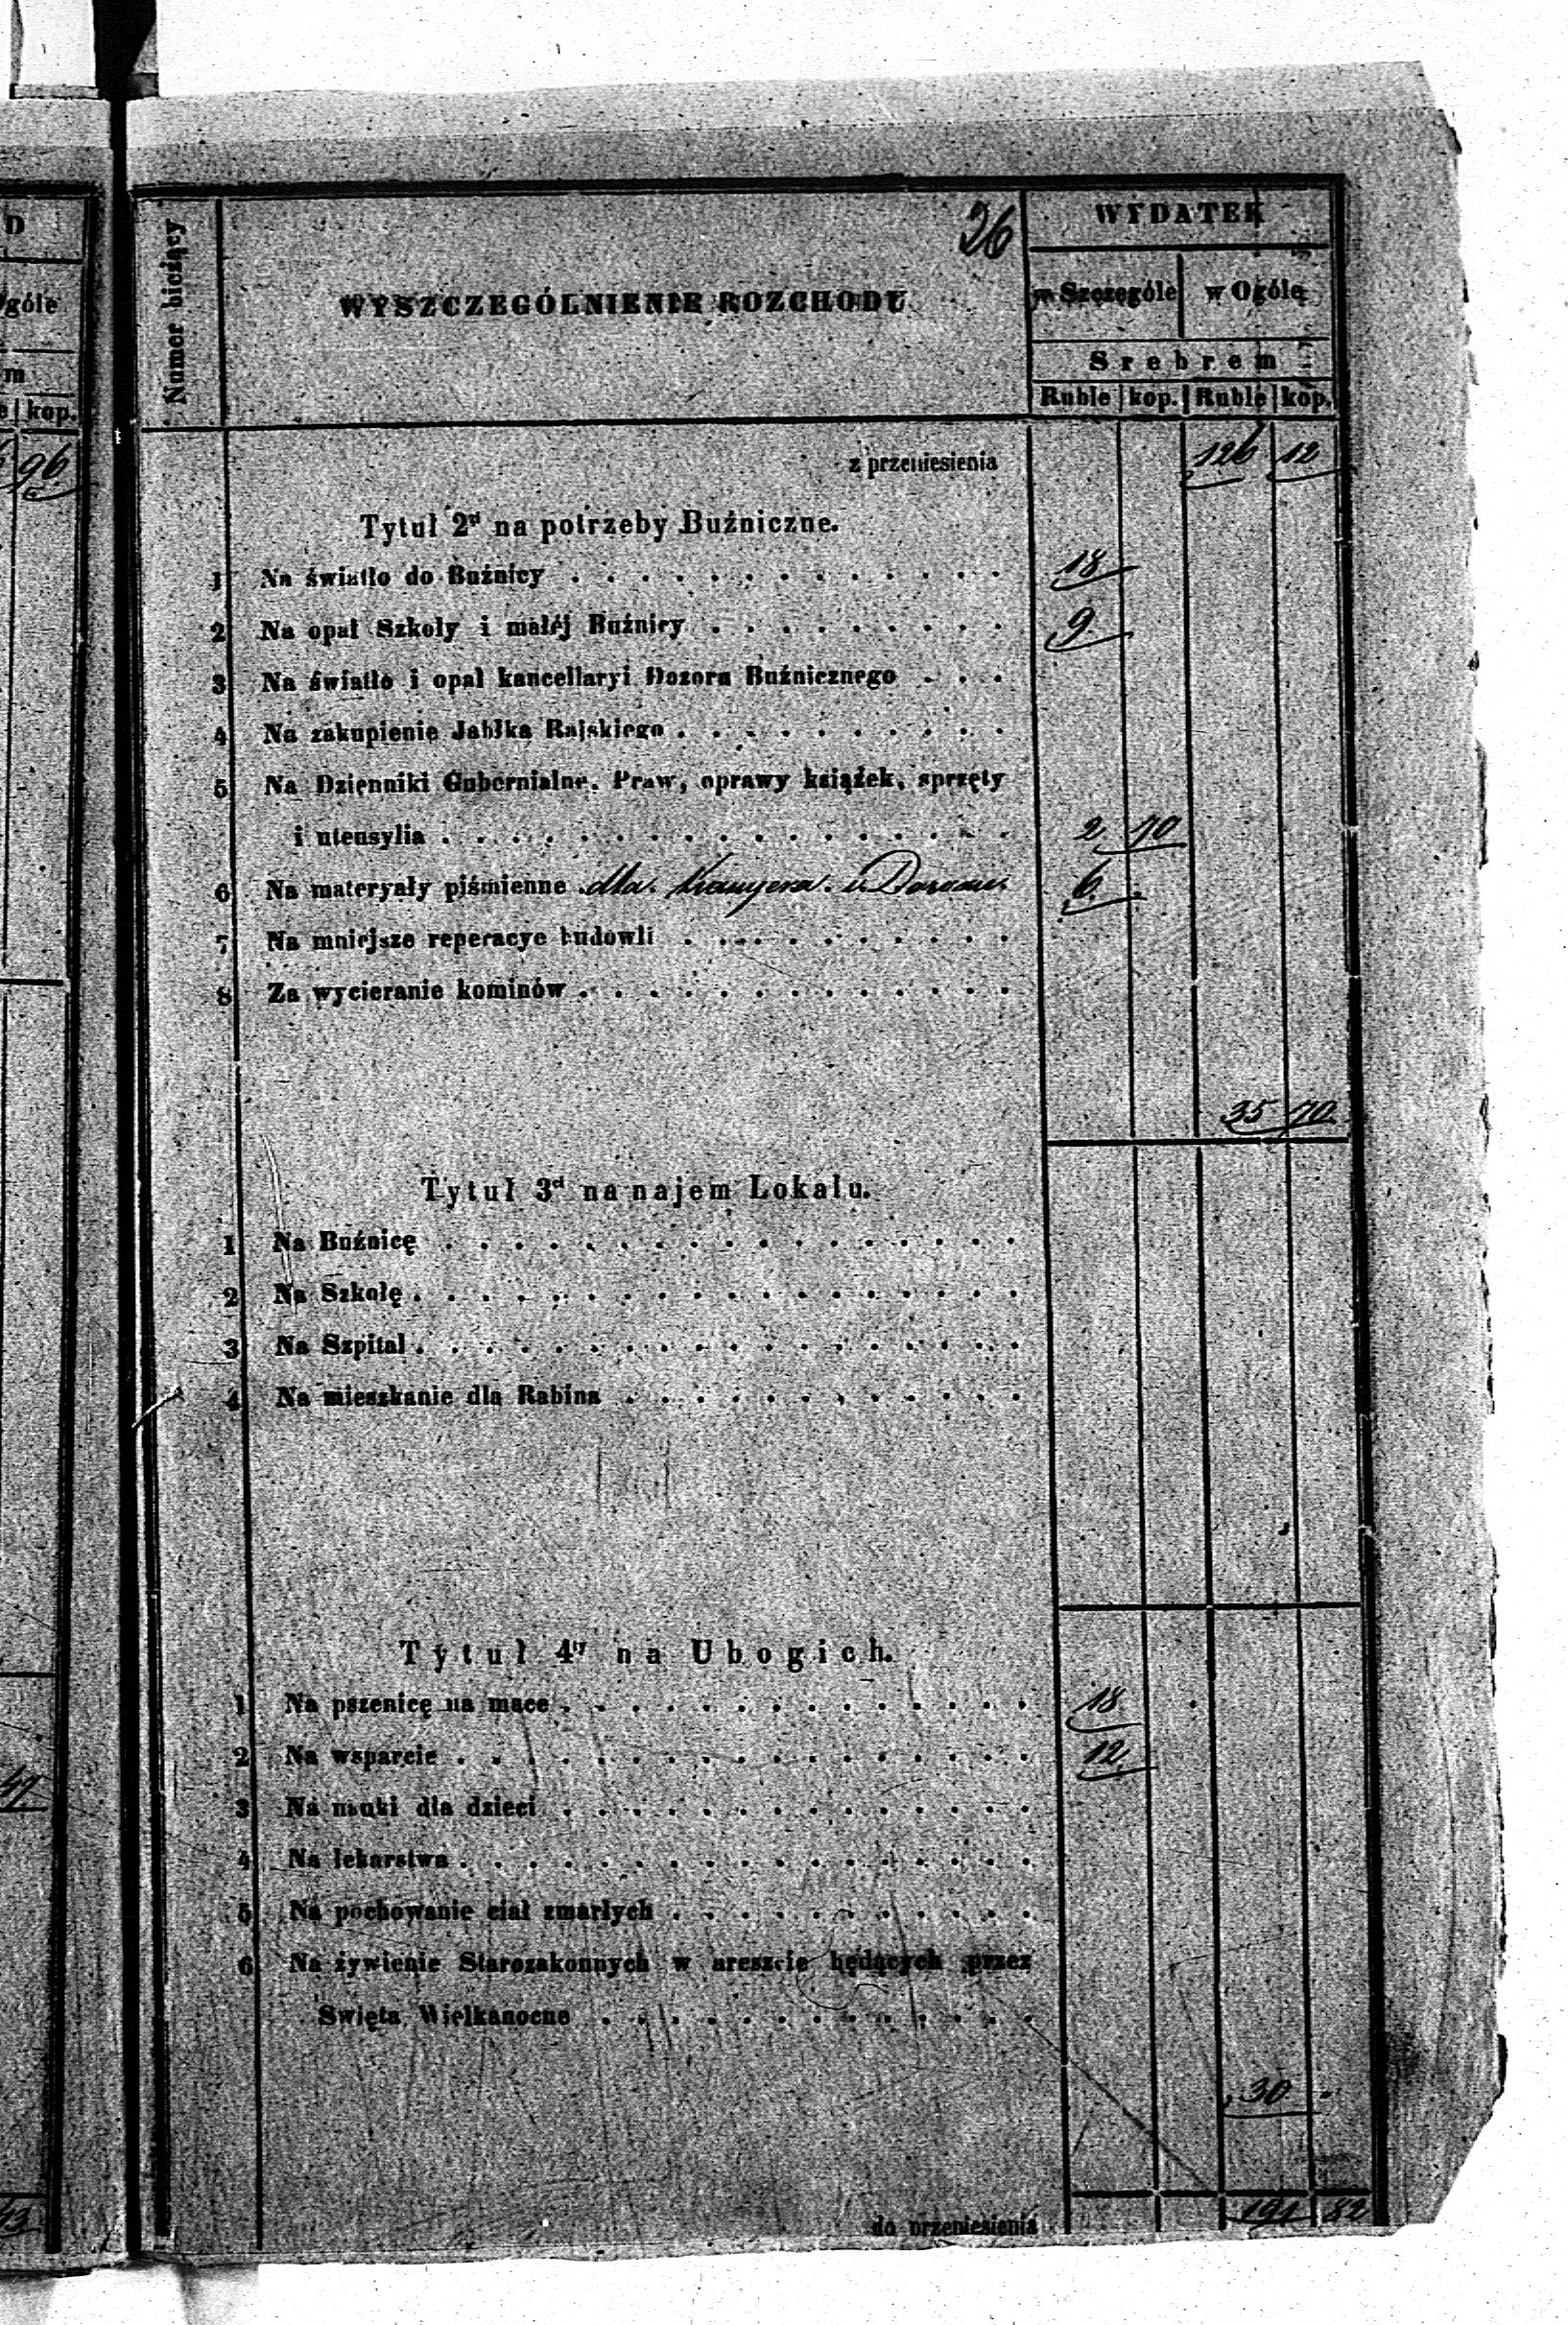 D
góle
m
kop.
96
47
43
26
Numer bieżący
WYSZCZEGÓLNIENIE ROZCHODU
WYDATEK
w Szczególe w Ogóle
Srebrem
Ruble kop. Ruble kop.
z przeniesienia 126 12
Tytuł 2gi na potrzeby Buźniczne.
1 Na światło do Buźnicy . . . . . . . . . . . . . 18
2 Na opał Szkoły i małéj Buźnicy . . . . . . . . . 9
3 Na światło i opał kancellaryi Dozoru Buźnicznego . . .
4 Na zakupienie Jabłka Rajskiego . . . . . . . . . .
5 Na Dzienniki Gubernialne, Praw, oprawy książek, sprzęty
i utensylia . . . . . . . . . . . . . . . . . 2 70
6 Na materyały piśmienne dla i 6 .
7 Na mniejsze reperacye budowli . . . . . . . . . .
8 Za wycieranie kominów . . . . . . . . . . . . .
35 70
Tytuł 3ci na najem Lokalu.
1 Na Buźnicę . . . . . . . . . . . . . . . . .
2 Na Szkołę . . . . . . . . . . . . . . . . . .
3 Na Szpital . . . . . . . . . . . . . . . . . .
4 Na mieszkanie dla Rabina . . . . . . . . . . . .
Tytuł 4ty na Ubogich.
1 Na pszenicę na mace . . . . . . . . . . . . . . 18 .
2 Na wsparcie . . . . . . . . . . . . . . . . . 12
3 Na nauki dla dzieci . . . . . . . . . . . . . .
4 Na lekarstwa . . . . . . . . . . . . . . . . .
5 Na pochowanie ciał zmarłych . . . . . . . . . . .
6 Na żywienie Starozakonnych w areszcie będących przez
Święta Wielkanocne . . . . . . . . . . . . .
30 .
do przeniesienia 191 82